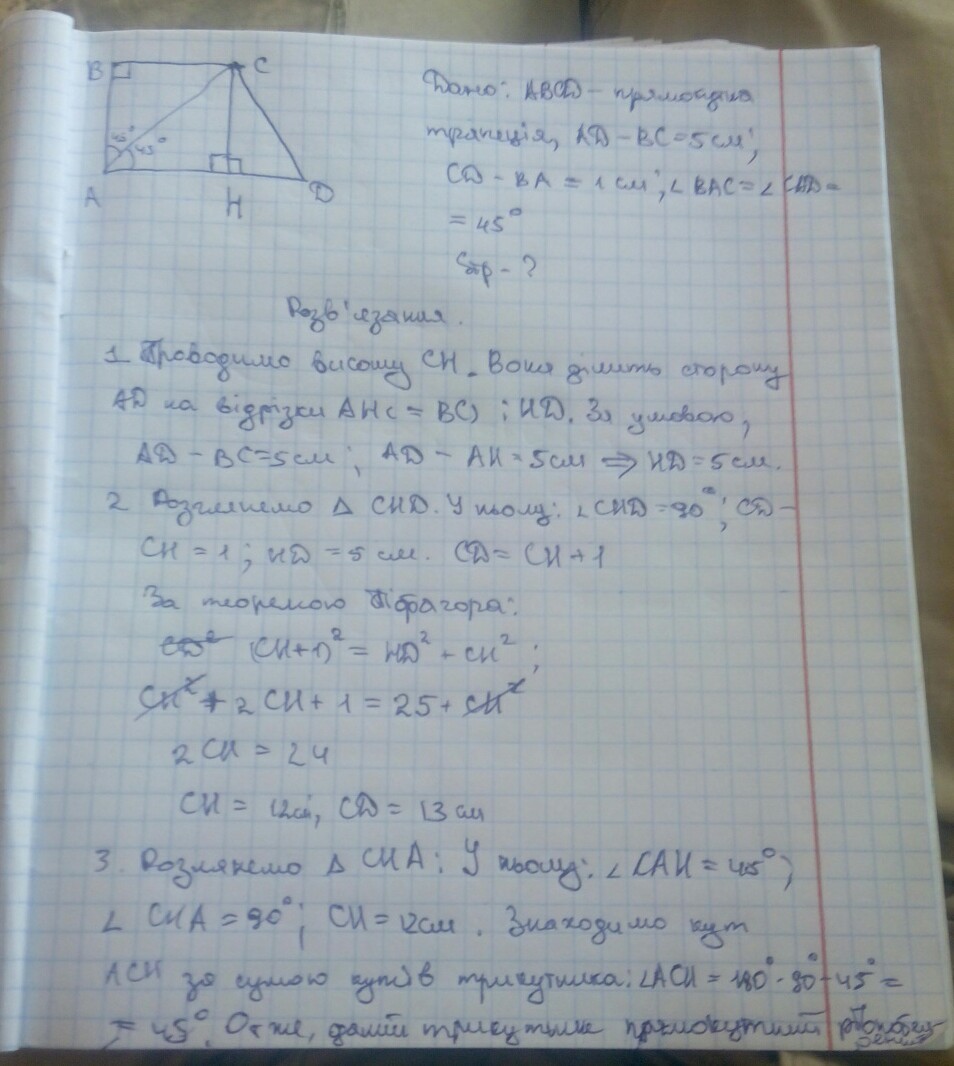 B C
45° 45°
A H D
Дано: ABCD – прямокутна
трапеція, AD – BC = 5 см;
CD – BA = 1 см; ∠BAC = ∠CAD =
= 45°
Sтр – ?
Розв'язання.
1 Проводимо висоту CH. Вона ділить сторону
AD на відрізки AH (= BC) і HD. За умовою,
AD – BC = 5 см; AD – AH = 5 см ⇒ HD = 5 см.
2 Розглянемо △ CHD. У ньому: ∠CHD = 90°; CD –
CH = 1; HD = 5 см. CD = CH + 1
За теоремою Піфагора:
CD² (CH+1)² = HD² + CH²;
CH² + 2 CH + 1 = 25 + CH²
2 CH = 24
CH = 12 см, CD = 13 см
3. Розглянемо △ CHA: У ньому: ∠CAH = 45°;
∠ CHA = 90°; CH = 12 см. Знаходимо кут
ACH за сумою кутів трикутника: ∠ACH = 180° - 90° - 45° =
= 45°. Отже, даний трикутник прямокутний